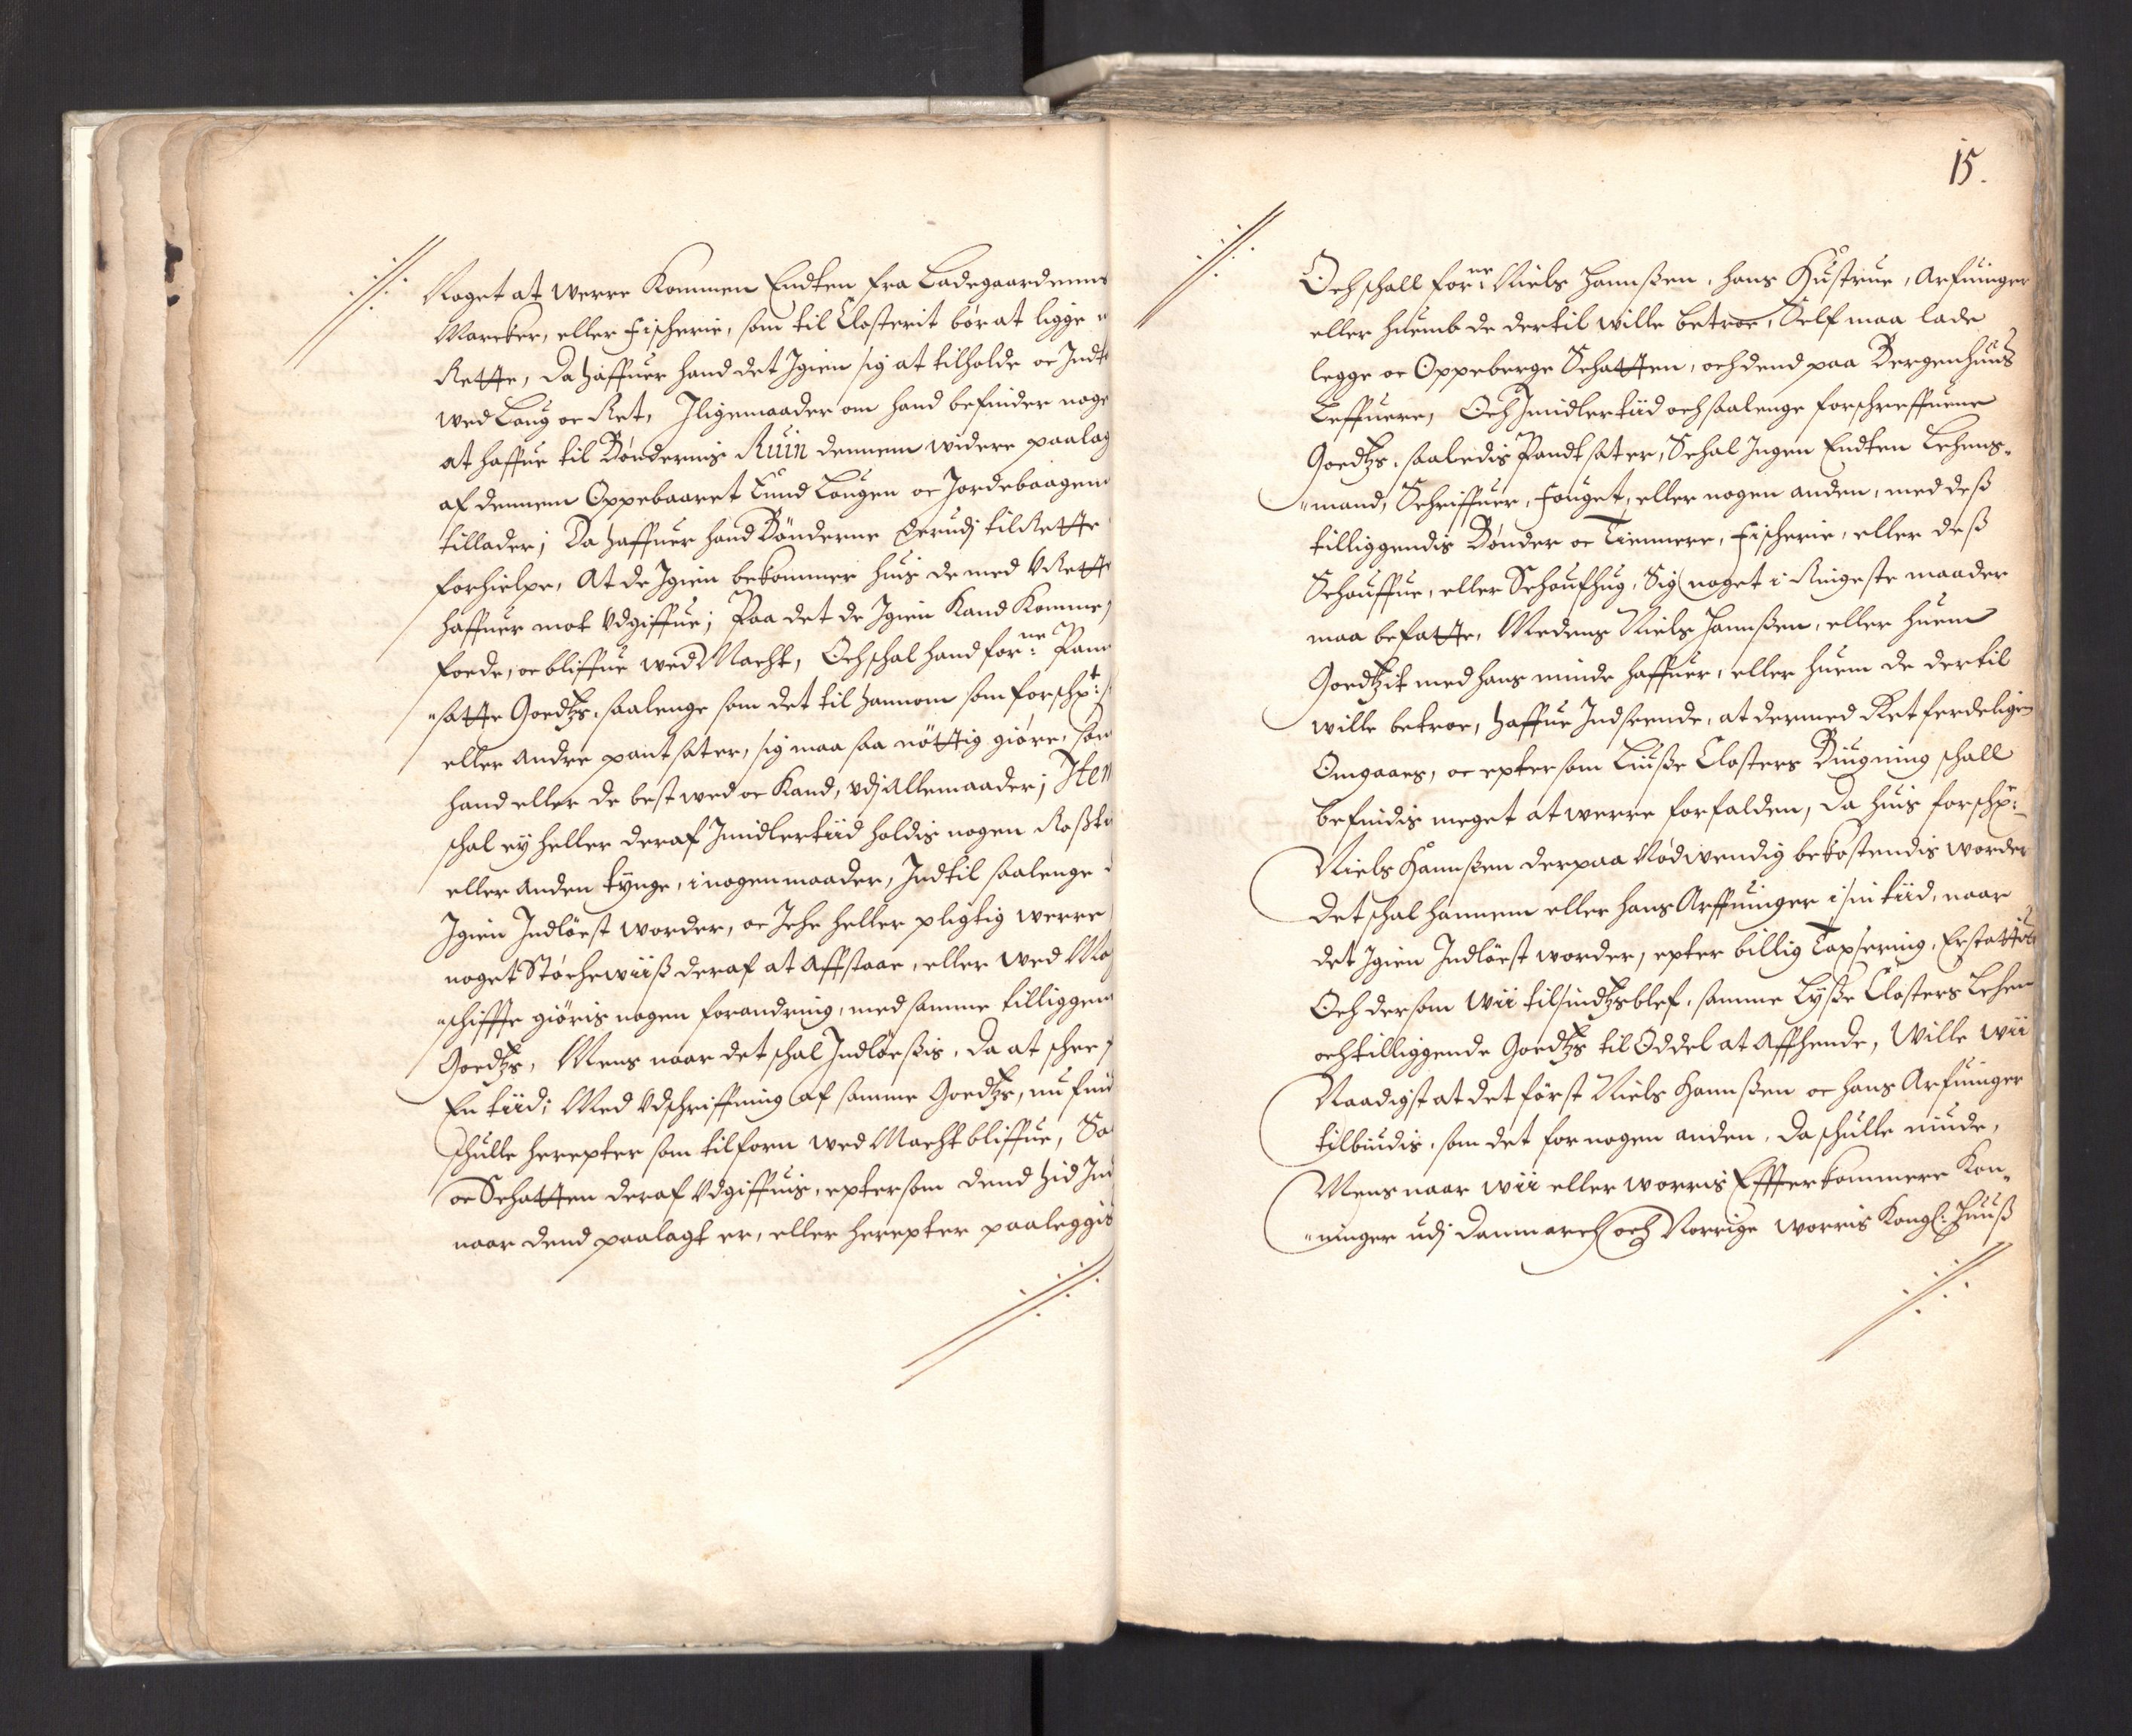 Noget at werre Kommen Endten fra Ladegaardenns
Marcker, eller fischerie, som til Closterit bör at ligge
Rette, da haffuer hand det Igien sig at tilholde oc Indt
wed Laug oc Ret, Iligemaader om hand befinder noge
at haffue til Böndernis Ruin dennem widere paalag
af dennem Oppebaaret End Laugen oc Jordebaagen
tillader; Da haffuer hand Bönderne derudj til Rette
forhielpe, At de Igien bekommer huis de med VRette
haffuer mot Vdgiffue; Paa det de Igien Kand Komme
foede, oc bliffue wed Macht, Och schal hand forne: Pan
"satte Goedtzs, saalenge som det til hannom som forschrt:
eller andre pantsat er, sig maa saa nöttig giöre, som
hand eller de best wed oc Kand, vdj Allemaader; Item
schal ey heller deraf Imidlertiid holdis nogen Roßti
eller anden tynge, i nogen maader, Indtil saalenge
Igien Indlöest worder, oc Iche heller pligtig werre
noget Störchewiiß deraf at Affstaae, eller wed Ma
"schiffte giöris nogen forandring, med samme tilliggen
Goedtzs, Mens naar det schal Indlöeßis, da at schee
En tiid; Med Vdschriffning af samme Goedtzs, nu fin
schulle herepter som tilforn wed Macht bliffue, Sa
oc Schatten deraf Vdgiffuis, eptersom dend hid Ind
naar dend paalagt er, eller herepter paaleggis
15.
Och schall forne: Niels Hannßen, hans Hustrue, Arfuinger
eller huemb de dertil wille betroe, Self maa lade
legge oc Oppeberge Schatten, och dend paa Bergenhuus
Leffuere, Och Imidlertiid och saalenge forschreffuene
Goedtzs, saaledis Pandtsat er, Schal Ingen Endten Lehens-
"mand, Schriffuer, fouget, eller nogen anden, med deß
tilliggendis Bönder oc Tiennere, fischerie, eller deß
Schouffue, eller Schoufhug, Sig noget i Ringeste maader
maa befatte, Medens Niels Hannßen, eller huem
Goedtzit med hans minde haffuer, eller huem de dertil
wille betroe, haffue Indseende, at dermed Retferdeligen
Omgaaes, oc eptersom Liuße Closters Biugning schall
befindis meget at werre forfalden, da huis forschr:
Niels Hannßen derpaa Nödwendig bekostendis worder
det schal hannem eller hans Arffuinger i sin tiid, naar
det Igien Indlöest worder, epter billig Taxsering, Erstattis
Och dersom wii tilsindtzs blef, samme Lyße Closters Lehen
och tilliggende Goedtzs til Oddel at Affhende, Wille wii
Naadigst at det först Niels Hannßen oc hans Arfuinger
tilbiudis, som det for nogen anden, da schulle niude,
Mens naar wii eller worris Effterkommere Kon-
"ninger udj Danmarch och Norrige worris Kongl: Huuß